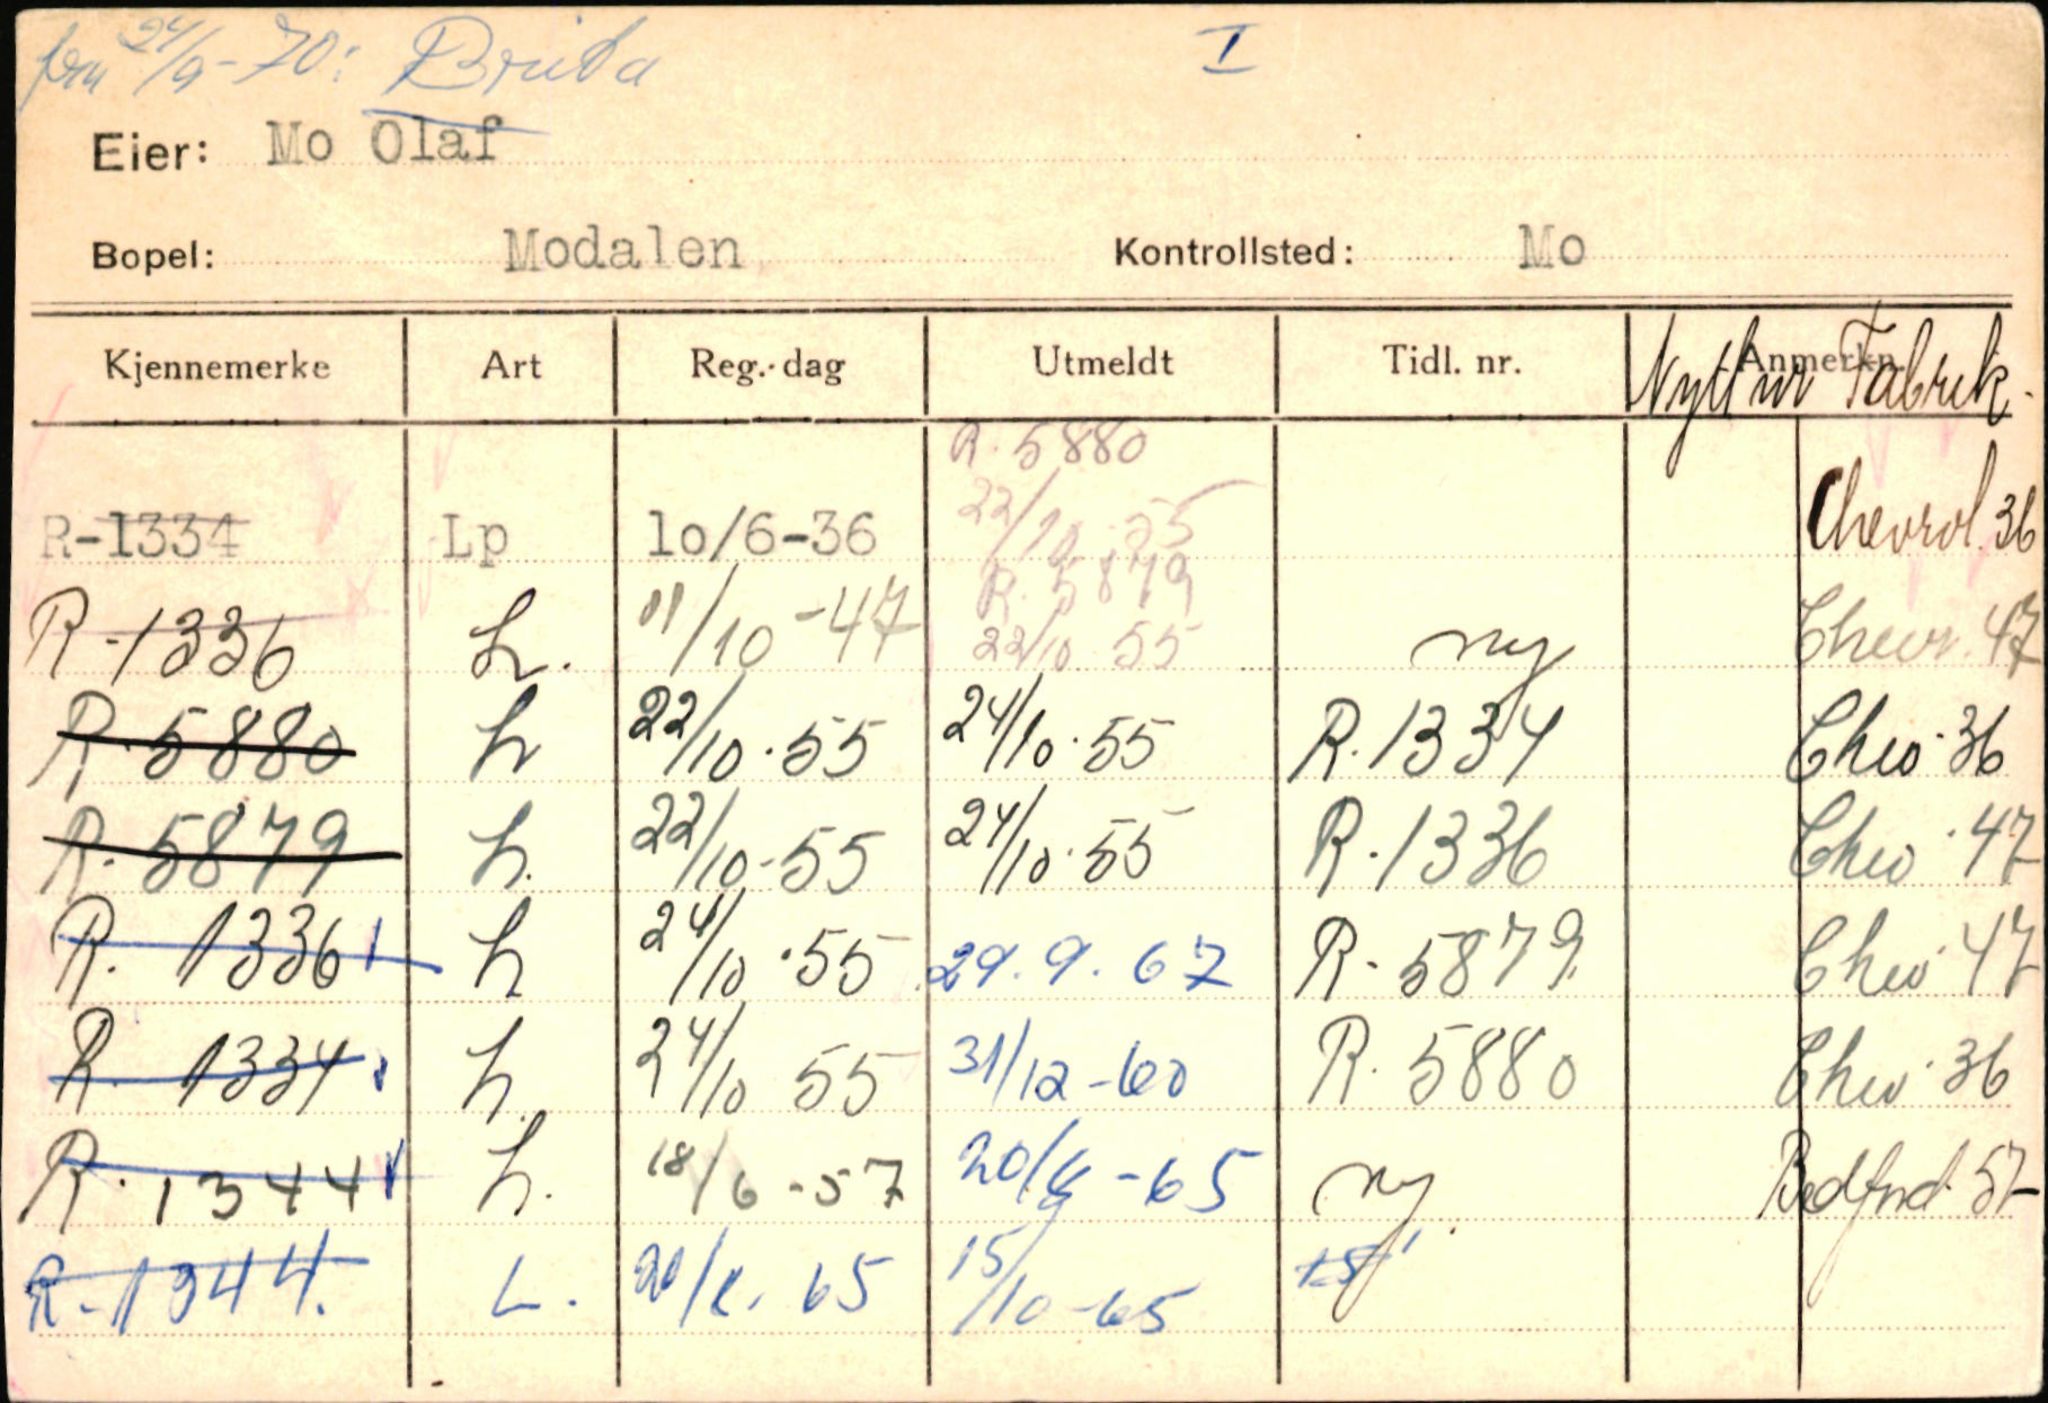 fra 24/9-70: Brita
I
Eier: Mo Olaf
Bopel: Modalen Kontrollsted: Mo
Kjennemerke Art Reg.-dag Utmeldt Tidl. nr. Anmerkn.
Nytt nr Fabrik.
R. 5880
R-1334 Lp 10/6-36 22/10 55 Chevrol. 36
R. 5879
R-1336 L. 11/10-47 22/10 55 ny Chevr. 47
R. 5880 L 22/10.55 24/10.55 R. 1334 Chev. 36
R. 5879 L. 22/10-55 24/10.55 R. 1336 Chev. 47
R. 1336 L 24/10.55 29.9.67 R-5879. Chev. 47
R. 1334 L. 24/10 55 31/12-60 R. 5880 Chev. 36
R. 1344 L. 18/6-57 65 ny. Bedford 57
R-1344. L. 65 15/10-65